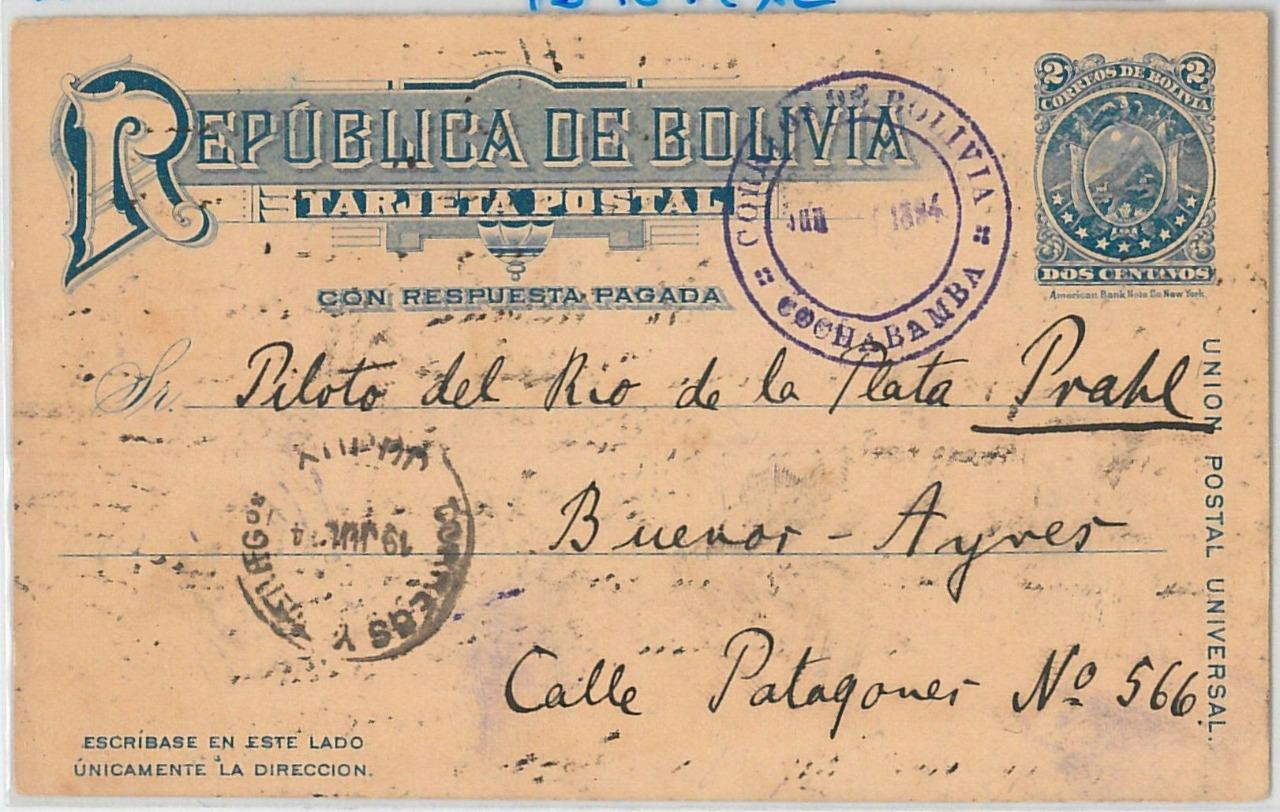 REPÚBLICA DE BOLIVIA
TARJETA POSTAL
CON RESPUESTA PAGADA
CORREOS DE BOLIVIA
COCHABAMBA
JUN 1894
2 2
CORREOS DE BOLIVIA
DOS CENTAVOS
American Bank Note Co. New York.
Sr. Piloto del Rio de la Plata Prahl
Buenos - Ayres
Calle Patagones Nº 566
UNION POSTAL UNIVERSAL.
CORREOS Y
19 JUL
ESCRÍBASE EN ESTE LADO
ÚNICAMENTE LA DIRECCION.